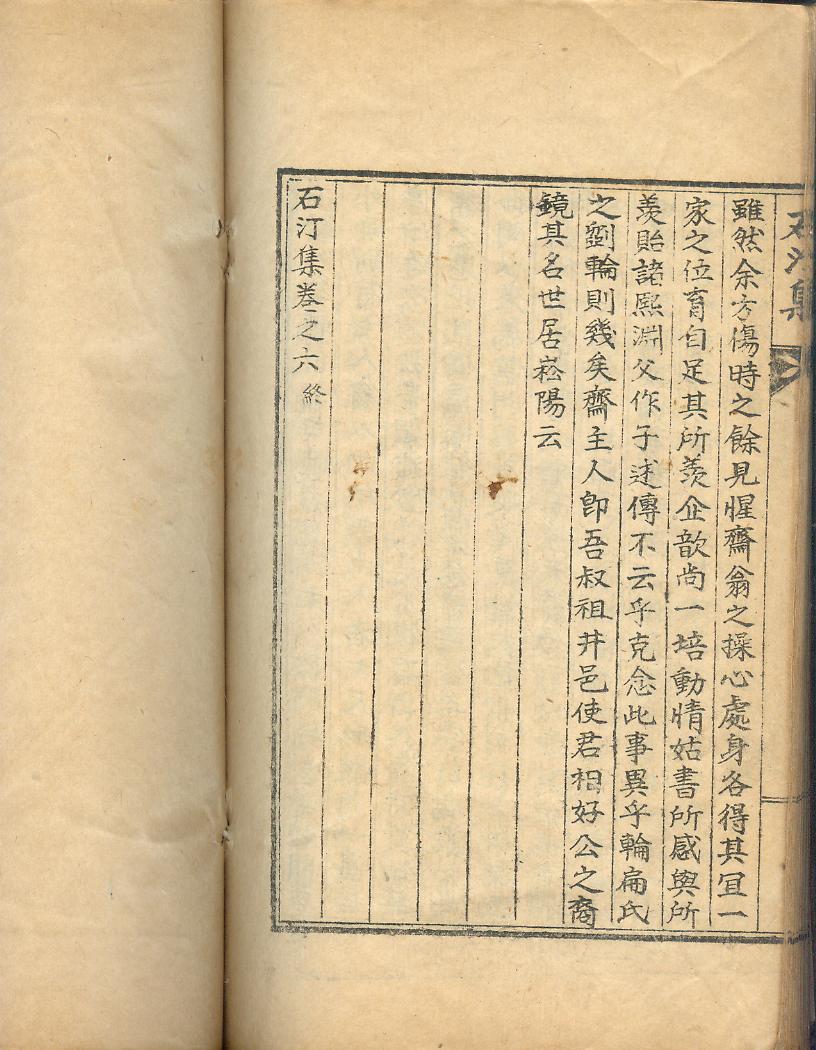 石汀集
雖然余方傷時之餘見惺齋翁之操心處身各得其宜一
家之位育自足其所羨企歆尚一培動情姑書所感與所
羨貽諸熙淵父作子述傳不云乎克念此事異乎輪扁氏
之劉輪則幾矣齋主人卽吾叔祖井邑使君相好公之裔
鏡其名世居崧陽云
石汀集卷之六 終